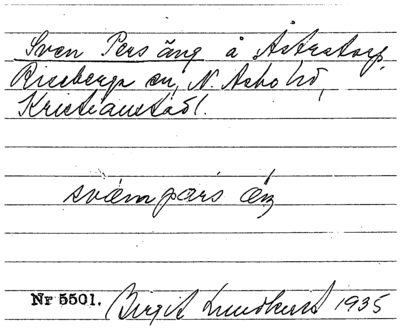 Sven Pers äng å Åstratorp,
Riseberga sn, N. Åsbo hd,
Kristianstad l.
svæm pærs æŋ
Nr 5501. Birgit Lundkvist 1935